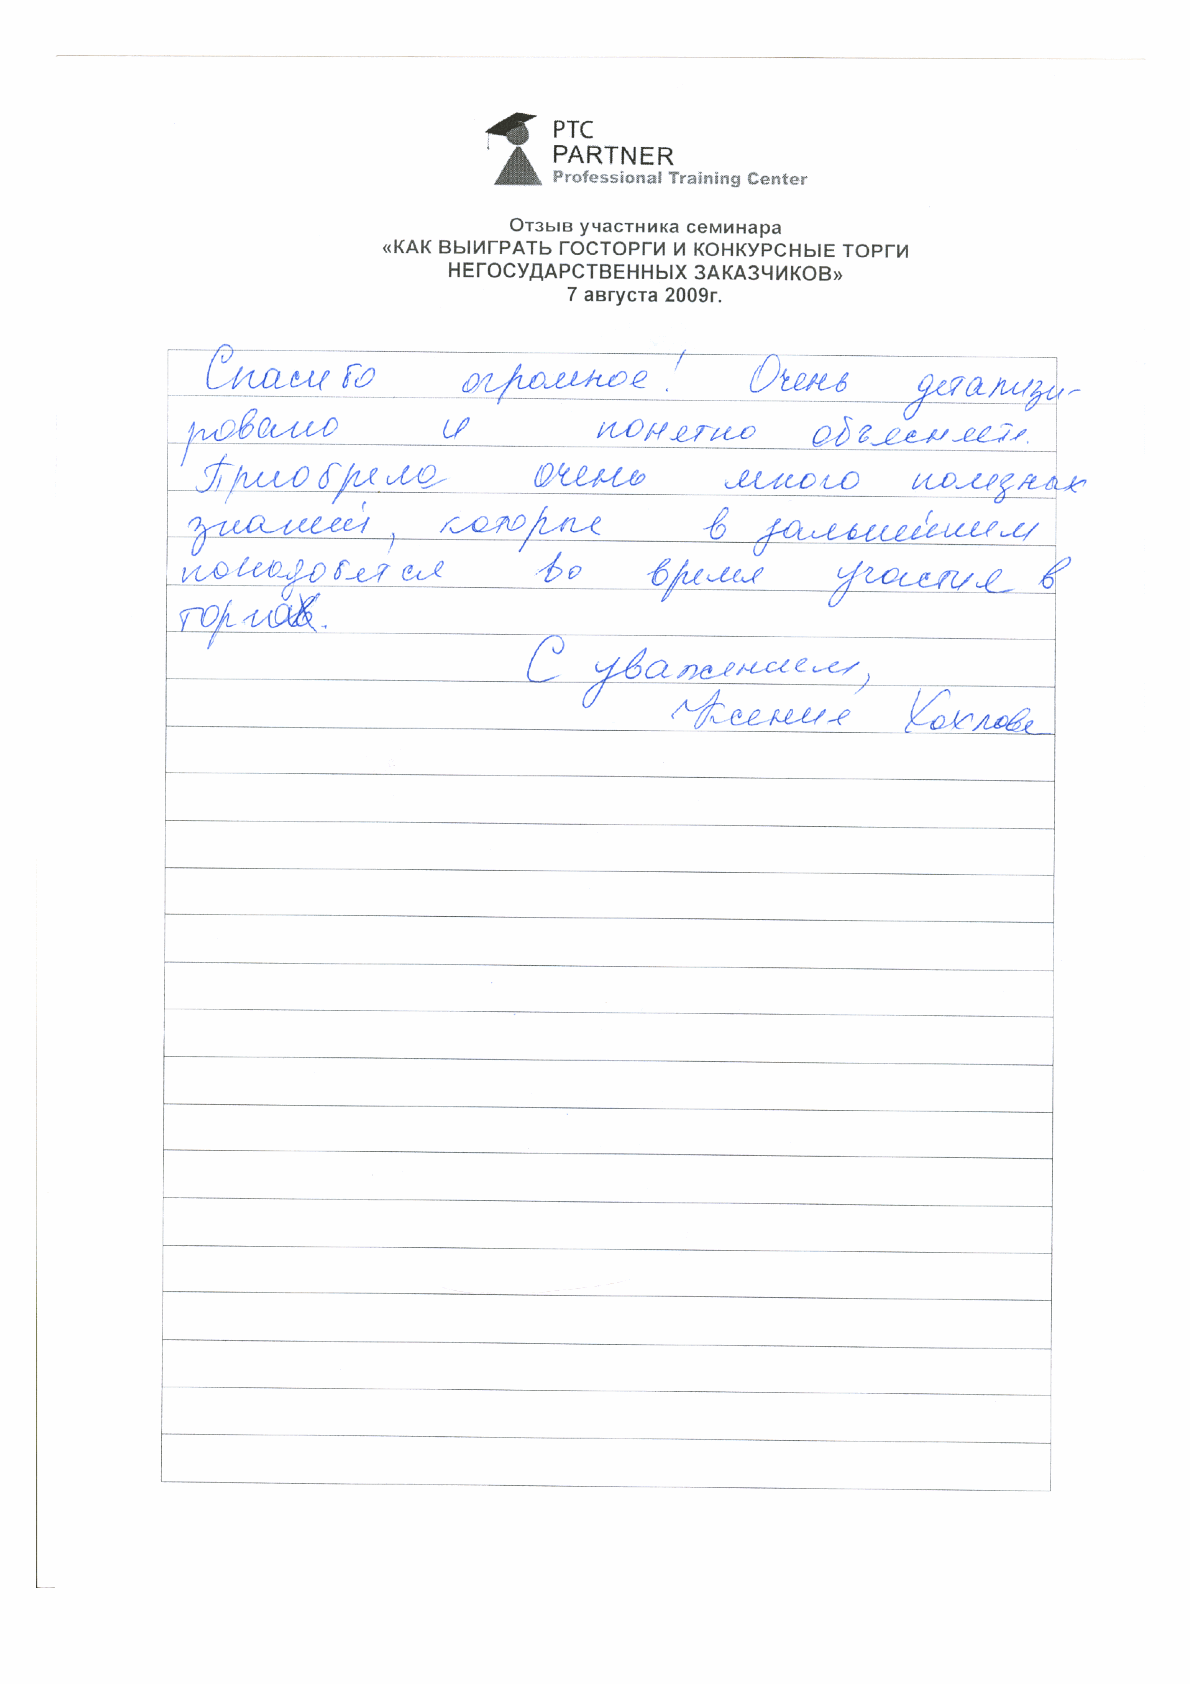 PTC
PARTNER
Professional Training Center
Отзыв участника семинара
«КАК ВЫИГРАТЬ ГОСТОРГИ И КОНКУРСНЫЕ ТОРГИ
НЕГОСУДАРСТВЕННЫХ ЗАКАЗЧИКОВ»
7 августа 2009г.
Спасибо огромное! Очень детализи-
ровано и понятно объясняете.
Приобрела очень много полезных
знаний, которые в дальнейшем
понадобятся во время участия в
торгах.
С уважением,
Ксения Хохлова